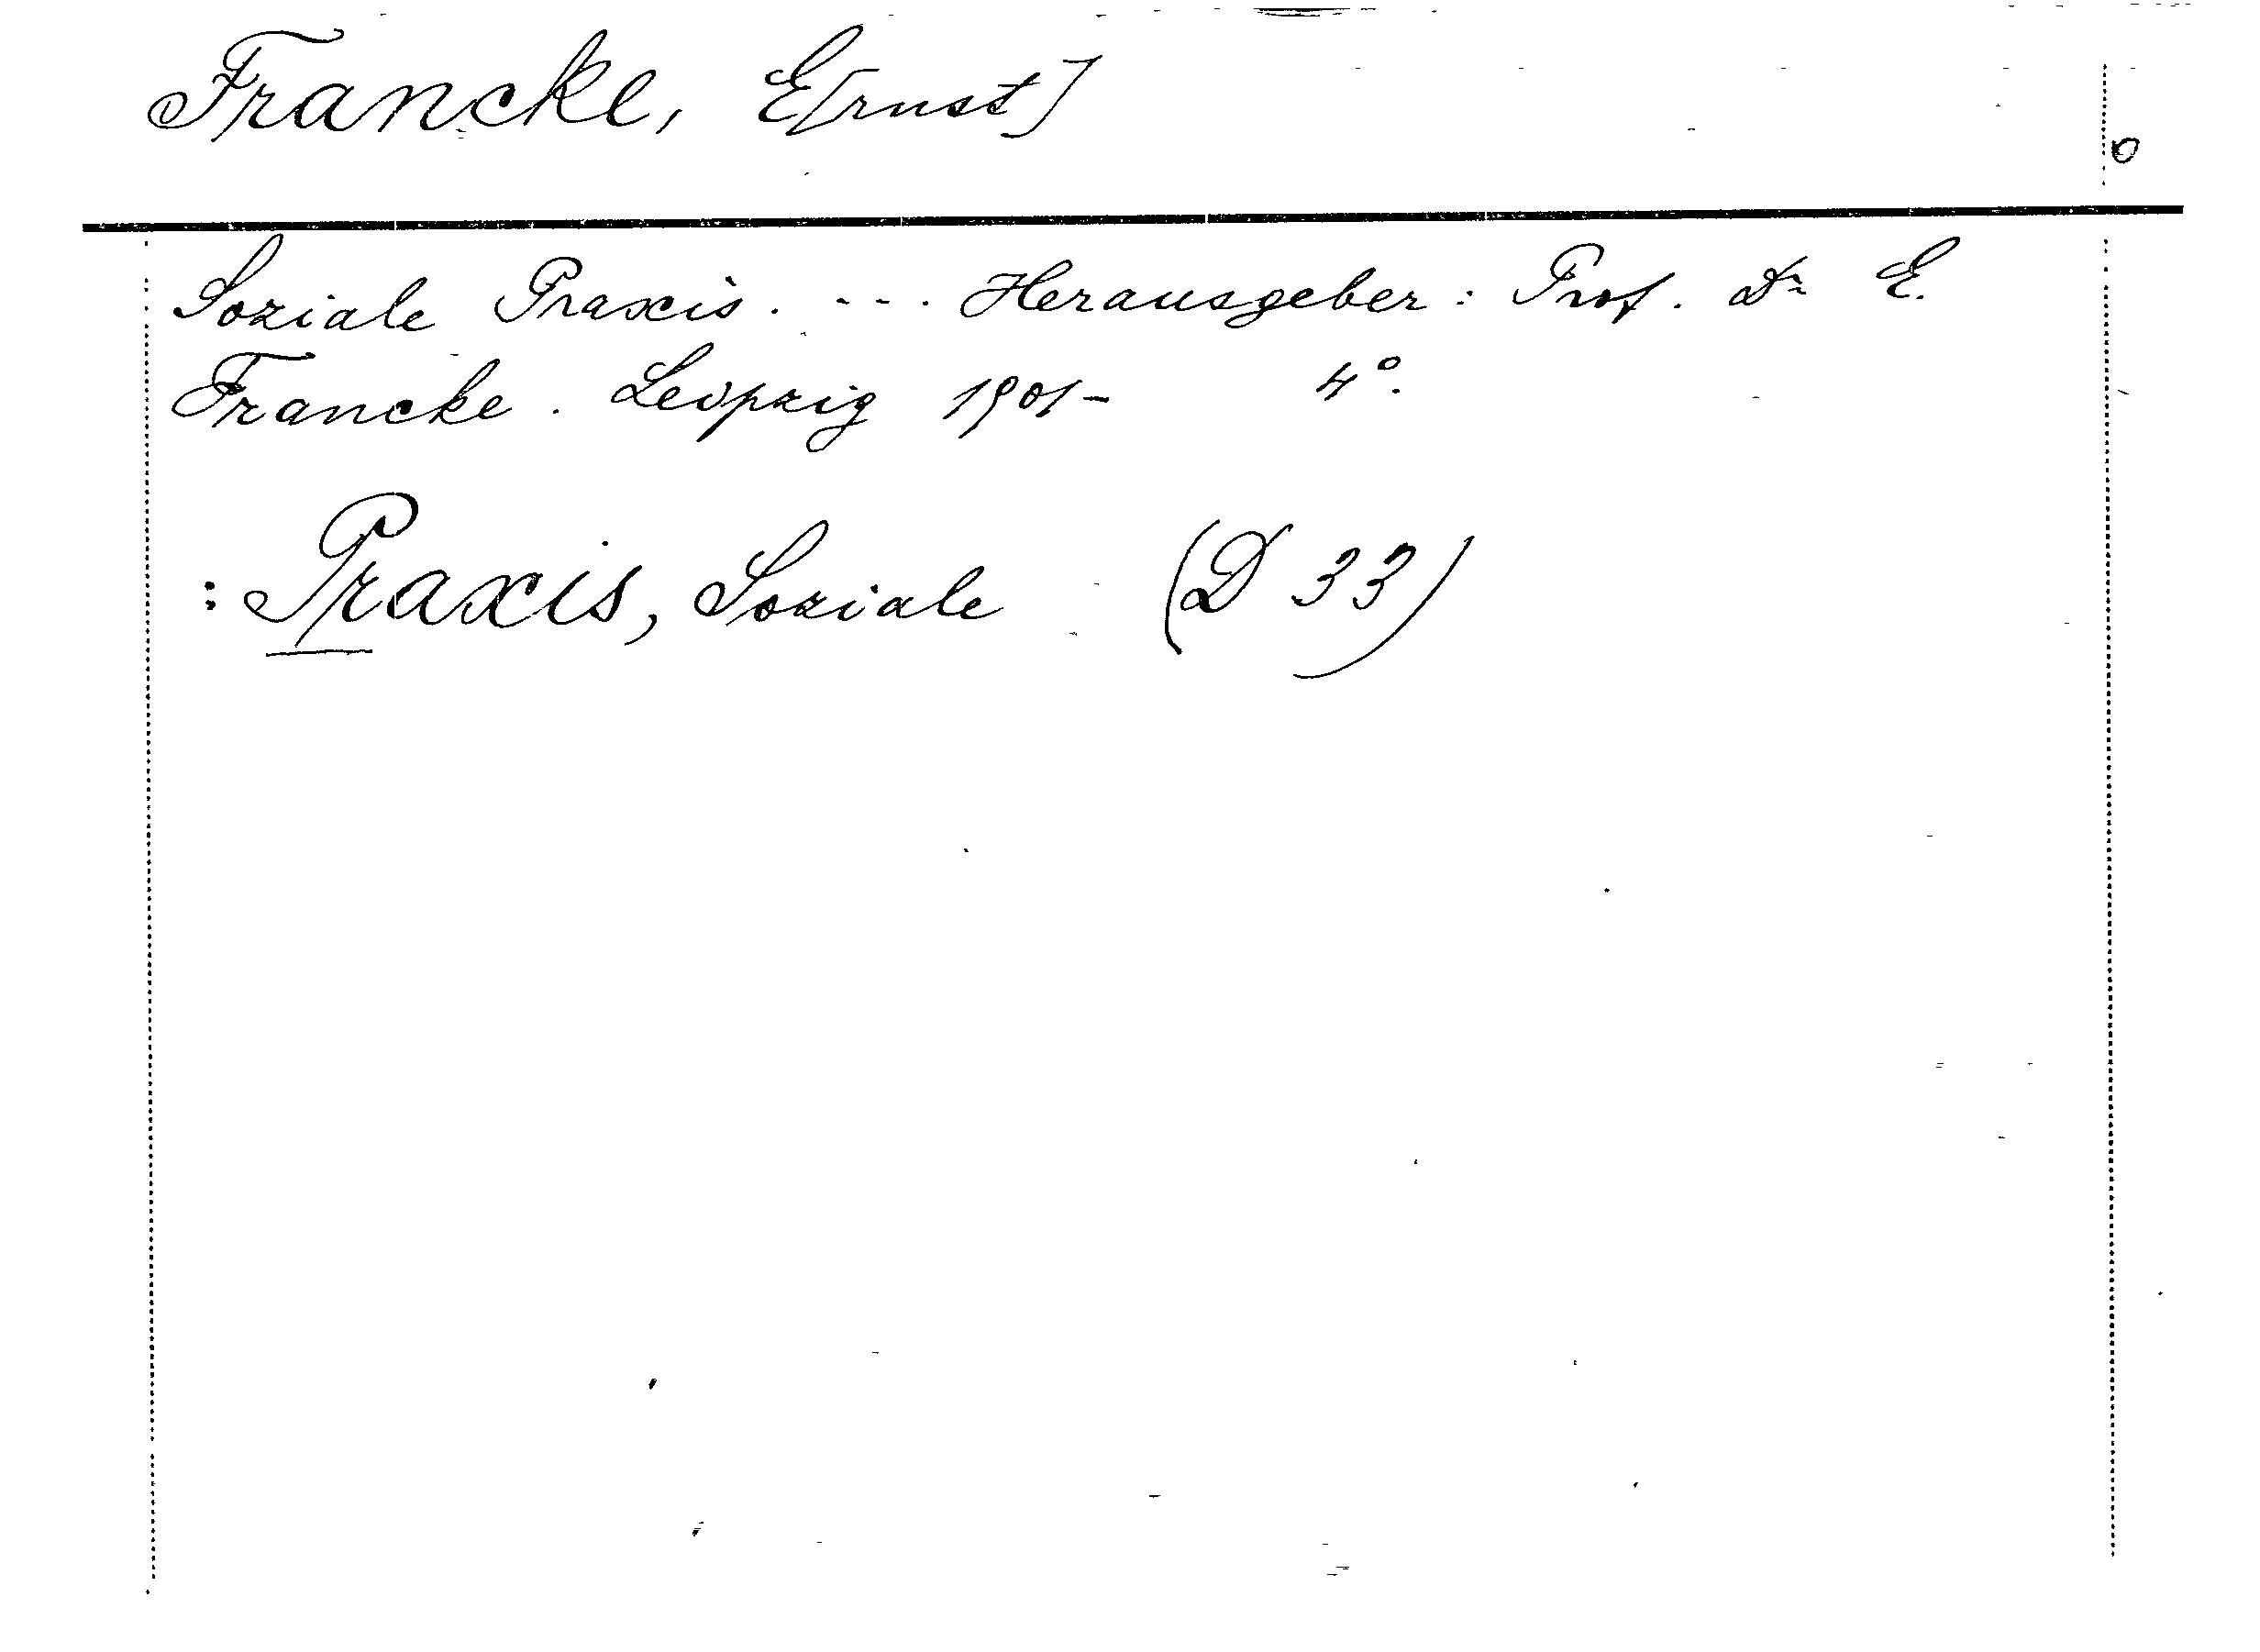 Francke, E[rnst]
Soziale Praxis. --. Herausgeber: Prof. Dr E.
Francke. Leipzig 1901- 4°.
: Praxis, Soziale (D 33)